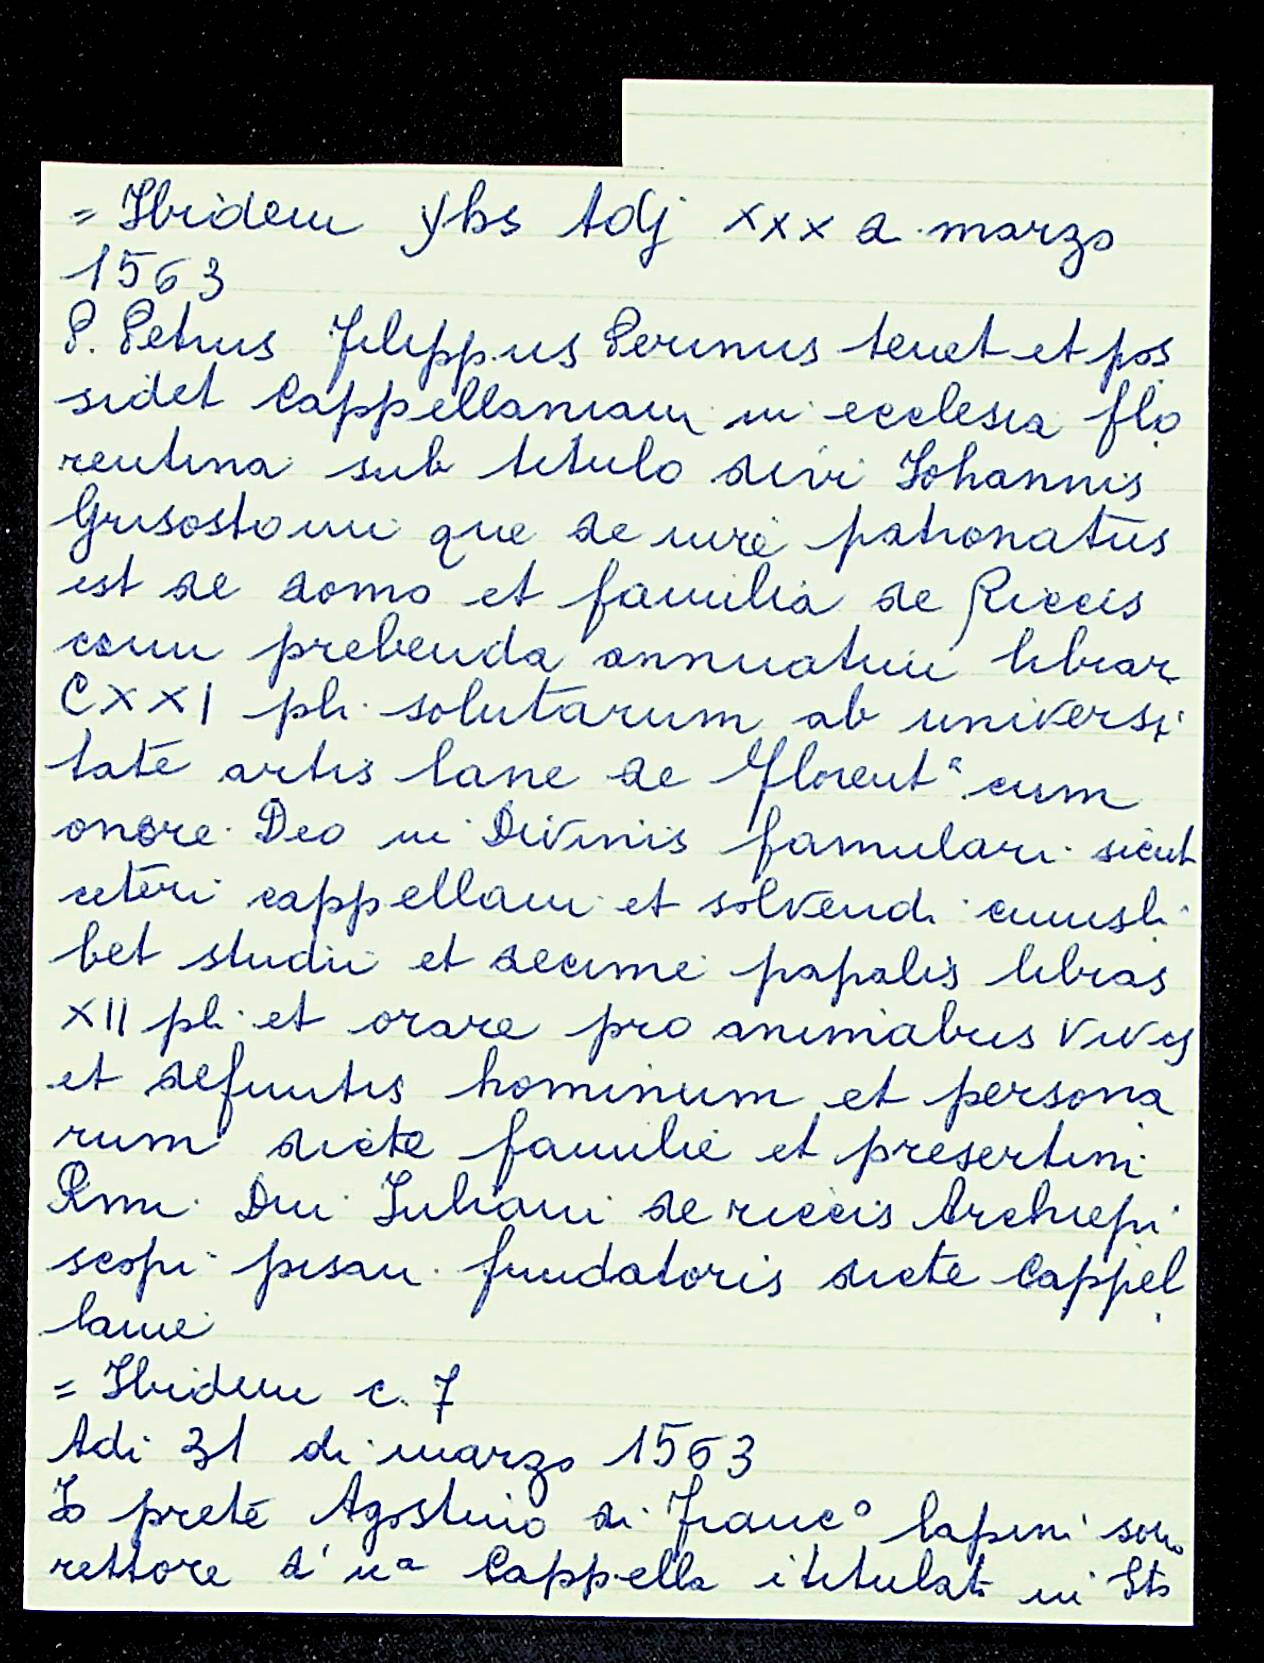 = Ibidem yhs Adj xxx a marzo
1563
P. Petrus Filippus Perinus tenet et pos
sidet Cappellaniam in ecclesia flo
rentina sub titulo divi Iohannis
Grisostomi que de iure patronatus
est de domo et familia de Riccis
cum prebenda annuatim librar
CXXI pli solutarum ab universi
tate artis lane de Florentª cum
onere Deo in Divinis famulari sicut
ceteri cappellani et solvendi cuiusli
bet studii et decime papalis libras
XII pli et orare pro animabus vivis
et defuntis hominum et persona
rum dicte familie et presertim
Rmi Dni Iuliani de riccis Archiepi
scopi pisan. fundatoris dicte Cappel
lanie
= Ibidem c. 7
Adi 31 di marzo 1563
Io prete Agostino di Francº lapini sono
rettore d'uª Cappella ititulata in Sto